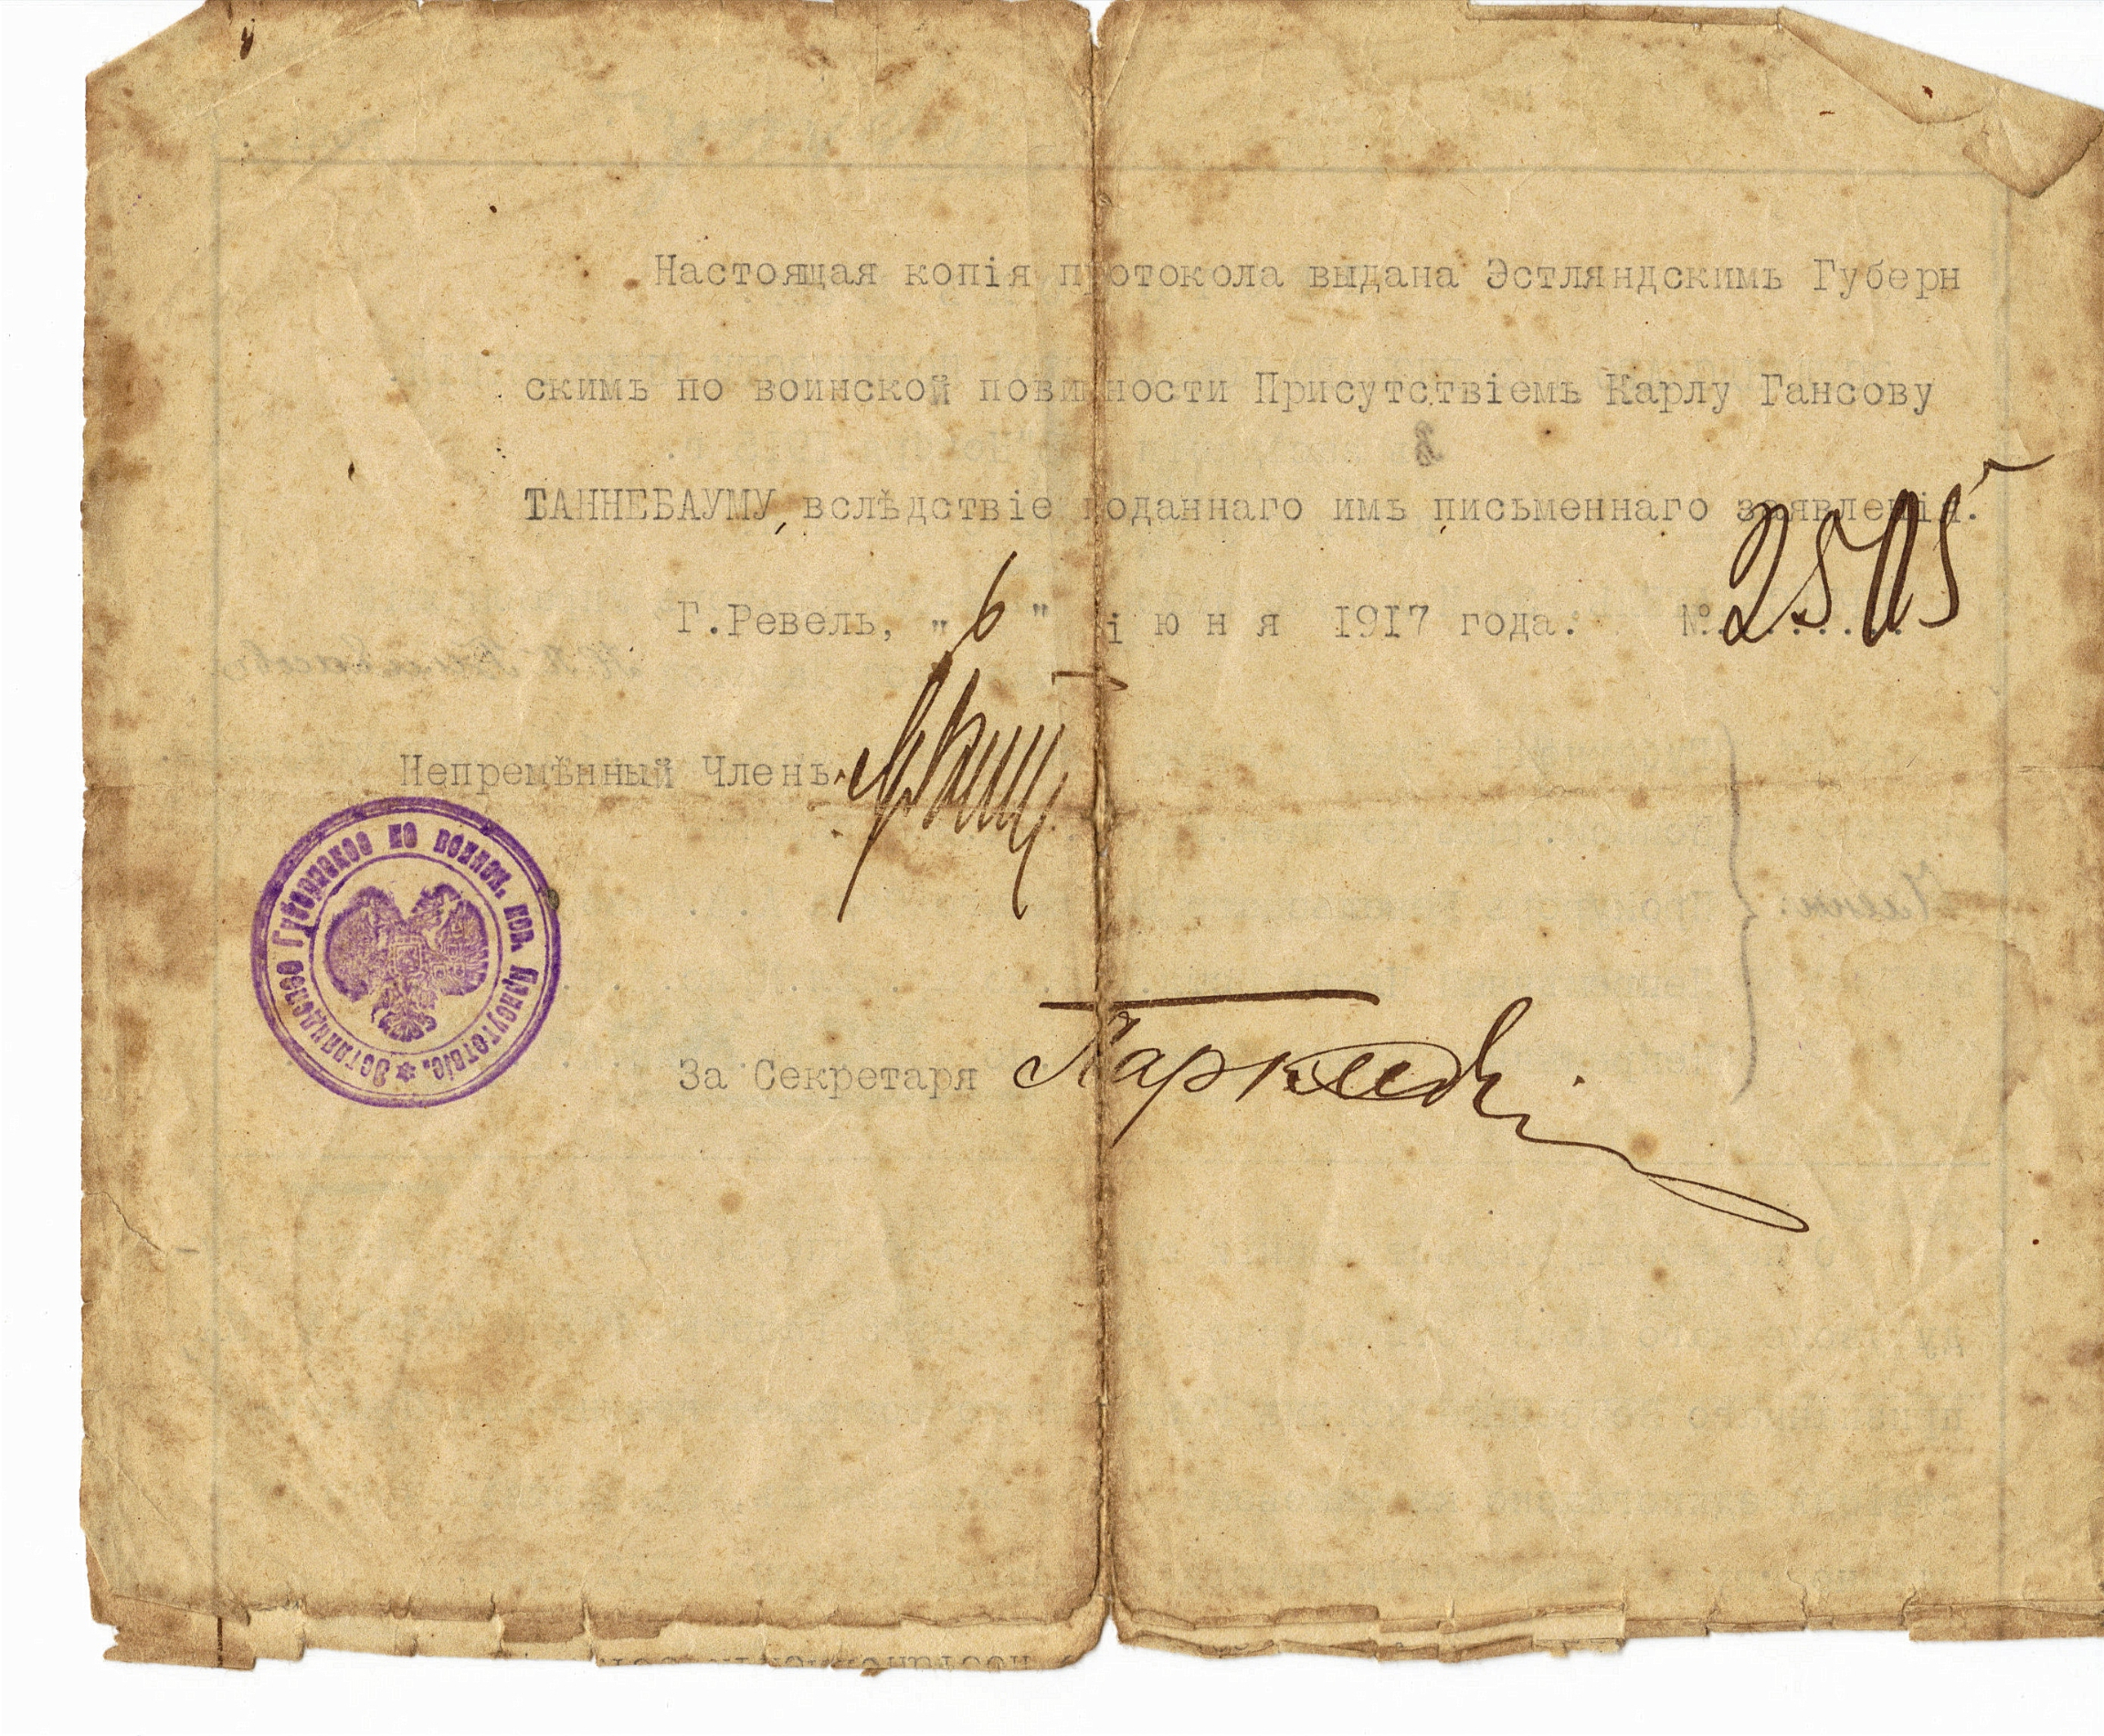 Настоящая копія протокола выдана Эстляндскимъ Губерн
скимъ по воинской повинности Присутствіемъ Карлу Гансову
ТАННЕБАУМУ, вслѣдствіе поданнаго имъ письменнаго заявленія.
Г.Ревель, "6" іюня 1917 года. №
Непремѣнный Членъ
Эстляндское Губернское по воинск. пов. Присутствіе.
За Секретаря